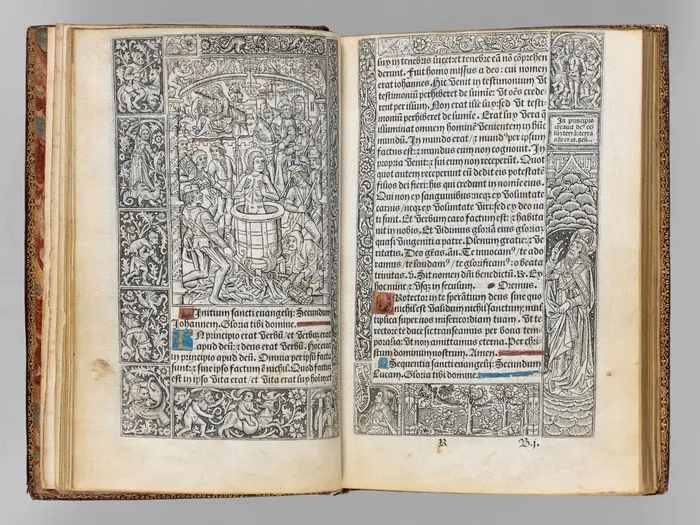 Initium sancti euangelij: Secundum
Johannem. Gloria tibi domine.
IN principio erat Verbū / et Verbū erat
apud deū: ⁊ deus erat Verbū. Hoc erat
in principio apud deū. Omnia per ipsū facta
sunt: ⁊ sine ipso factum ē nichil. Quod factū
est in ipso Vita erat / et Vita erat lux hominū ⁊
lux in tenebris lucet ⁊ tenebre eā nō cōprehen
derunt. Fuit homo missus a deo: cui nomen
erat iohannes. Hic Venit in testimonium Vt
testimoniū perhiberet de lumine: Vt oēs crede
rent per illum. Non erat ille lux: sed Vt testi
moniū perhiberet de lumine. Erat lux Vera q̄
illuminat omnem hominē Venientem in hūc
mundū. In mundo erat / ⁊ mundꝰ per ipsum
factus est: ⁊ mundus eum non cognouit. In
propria Venit: ⁊ sui eum non receperūt. Quot
quot autem receperunt eū dedit eis potestatē
filios dei fieri: his qui credunt in nomine eius.
Qui non ex sanguinibus: neqꝫ ex Voluntate
carnis / neqꝫ ex Voluntate Viri: sed ex deo na
ti sunt. Et Verbum caro factum est: ⁊ habita
uit in nobis. Et Vidimus gloriā eius gloriā
quasi Vnigeniti a patre. Plenum gratie: ⁊ Ve
ritatis. Deo grās. añ. Te inuocamꝰ / te ado
ramus / te laudamꝰ / te glorificamꝰ: o beata
trinitas. v. Sit nomen dn̄i benedictū. R. Ex
hoc nunc ⁊ Vsqꝫ in seculum. Oremus.
Protector in te sperātium deus sine quo
nichil est Validum nichil sanctum: mul
tiplica super nos misericordiam tuam. Vt te
rectore te duce sic transeamus per bona tem
poralia: Vt non amittamus eterna. Per chri
stum dominum nostrum. Amen.
Sequentia sancti euangelij: Secundum
Lucam. Gloria tibi domine.
In principio
creauit deꝰ ce
lū ⁊ terrā terra
aūt erat. gen.
R B.j.